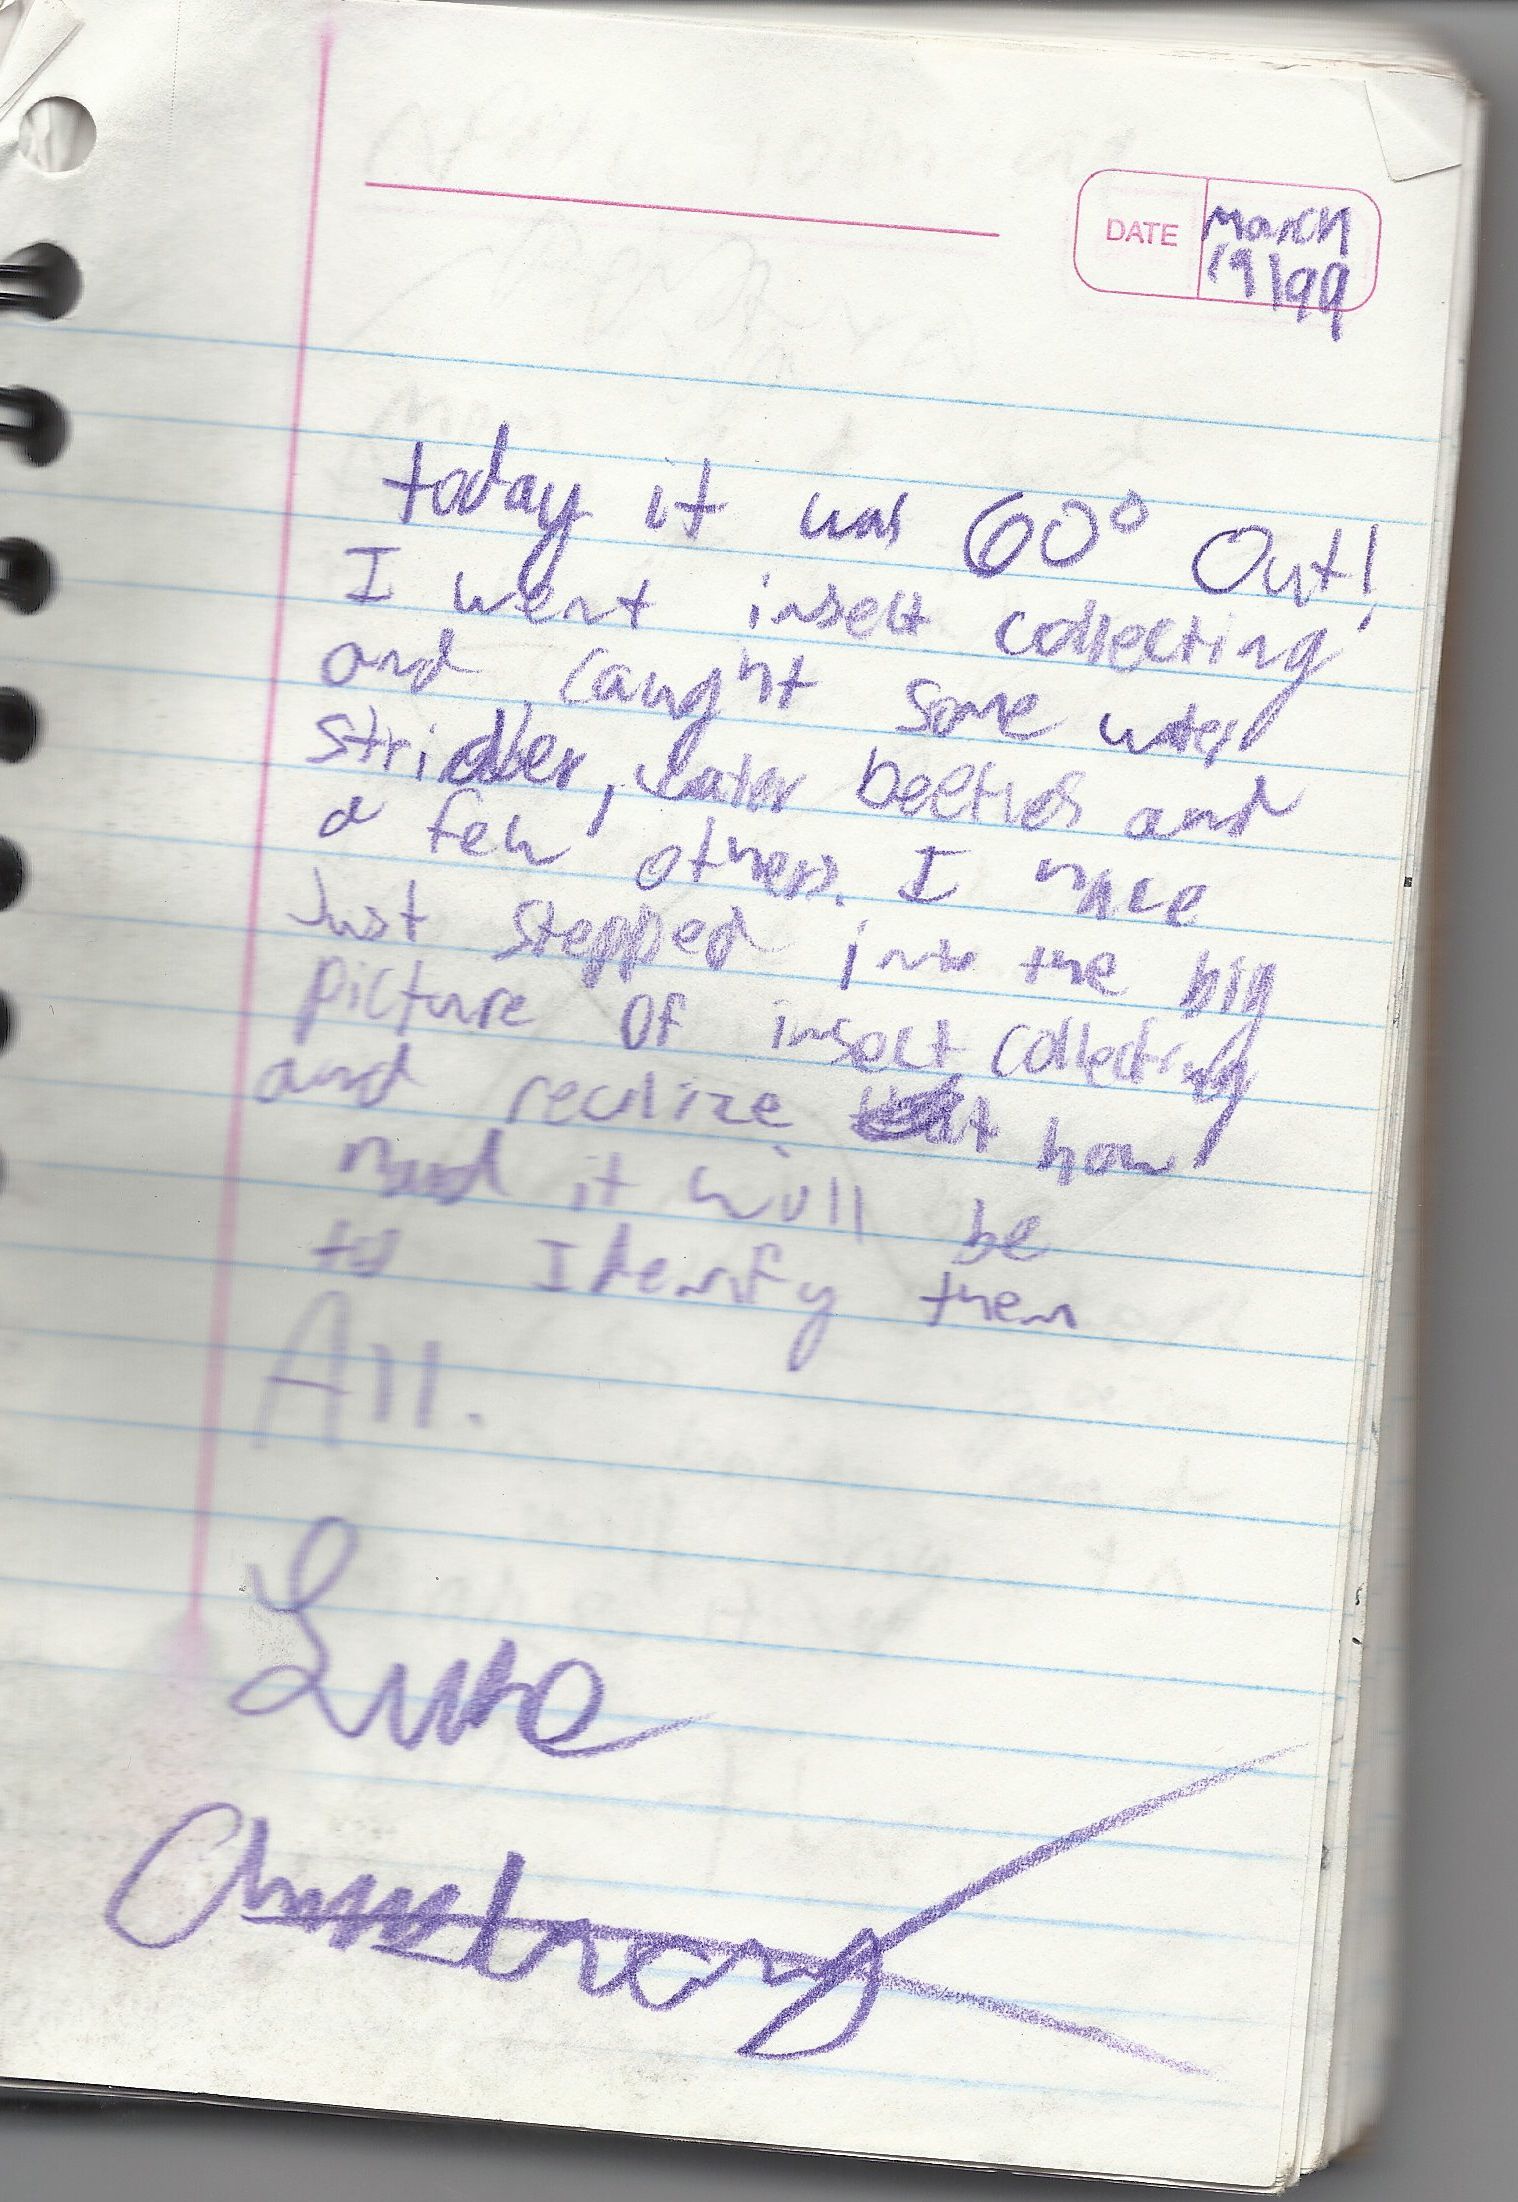 DATE March
19/99
today it was 60° Out!
I went insect collecting
and caught some water
stridder, water beetles and
a few others. I
Just stepped into the big
picture of insect collecting
and reulize how
it will be
to Identify them
All.
Luke